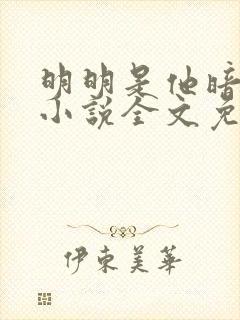 明明是他暗
小说全文免
伊东美华